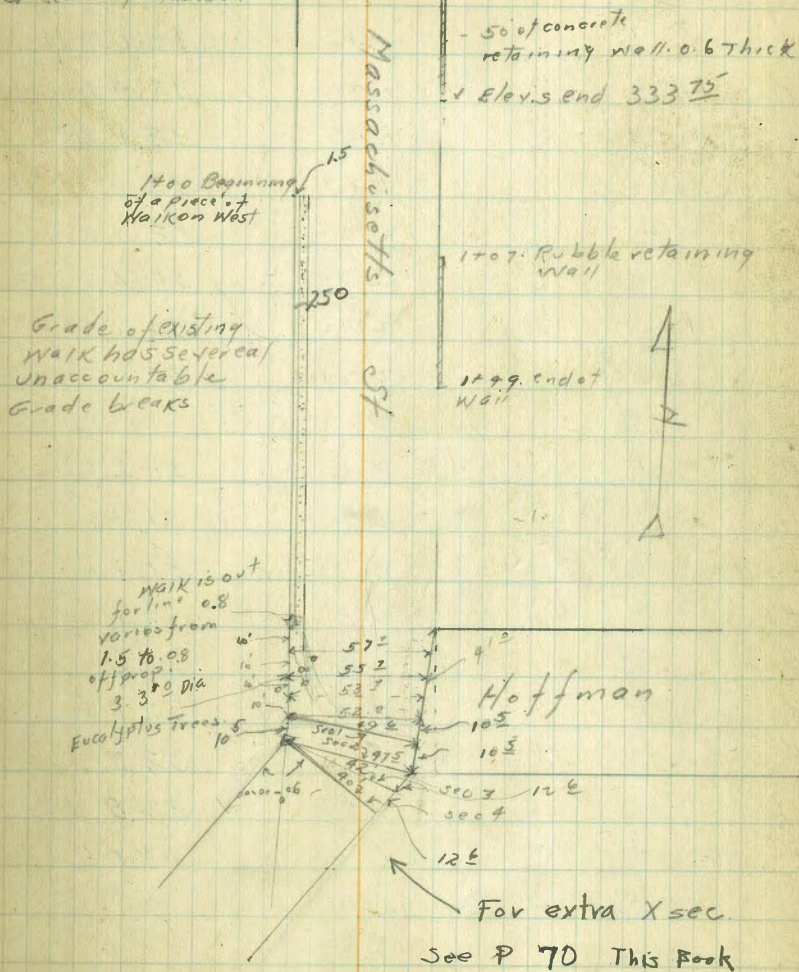 - 50' of concrete
retaining wall. 0.6 Thick
Elev. S end 333 75
Massachusetts St
1.5
1+00 Beginning
of a piece of
Walk on West
250
1+07. Rubble retaining
Wall
Grade of existing
Walk has severeal
unaccountable
Grade breaks
1+49. end of
Wall
Walk is out
for line 0.8
varies from
1.5 to 0.8
off prop.
3. 3.0 Dia
Eucalyptus Trees
10'
10
10
10
10 5
57 2
55 2
53 2
52 0
49 6
41 0
Hoffman
10 5
10 5
sec 1
sec 2
sec 3
sec 4
12 6
12 6
For extra X sec.
See P 70 This Book